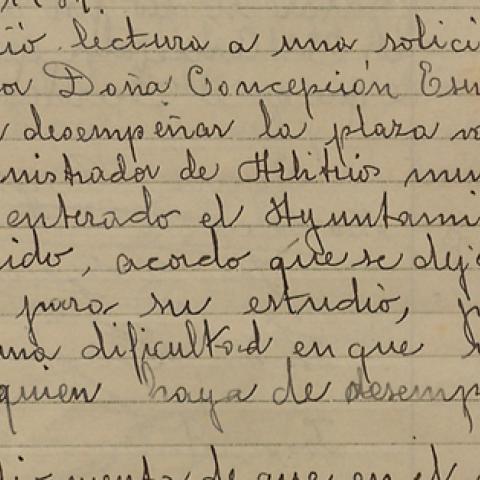 ió lectura a una solici
or Doña Concepción Esu
desempeñar la plaza va
nistrador de Arbitrios mun
enterado el Ayuntami
ido, acordo que se deja
para su estudio, p
una dificultad en que
quien haya de desemp
cuenta de que en el